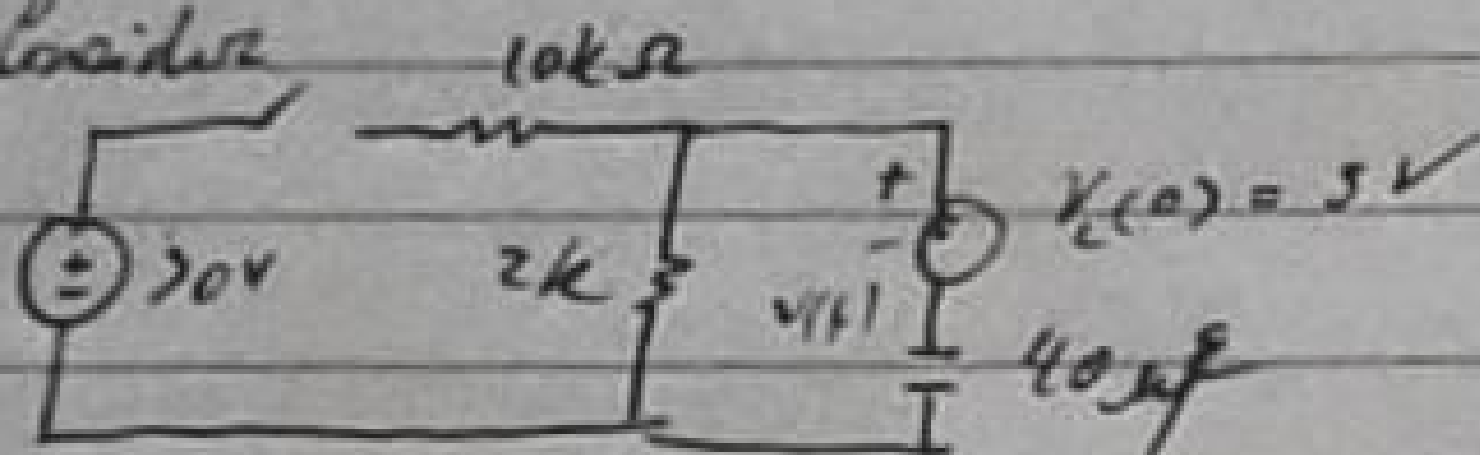 Consider
10kΩ
+
-
30V
2k
+
-
V(t)
V_c(0) = 5V
40μF